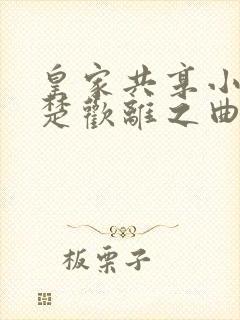 皇家共享小
楚歡離之曲
板栗子